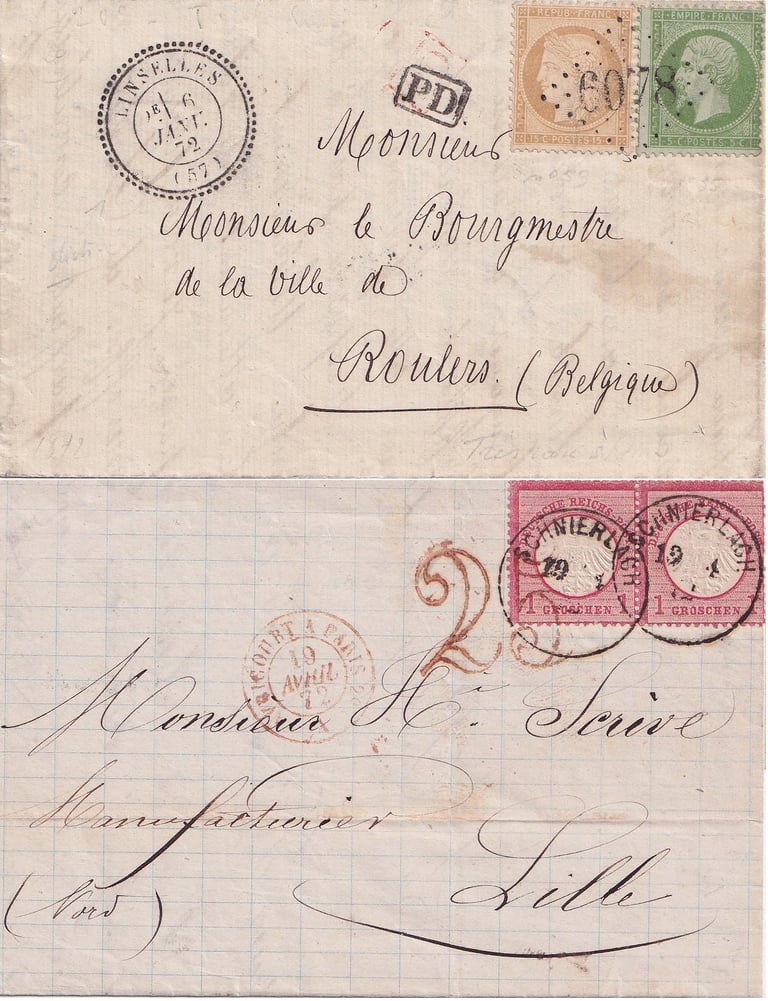 REPUB. FRANC. EMPIRE FRANC.
LINSELLES
PD
6078
6
JANV.
72
(57)
15 C. POSTES 15 5 C. POSTES 5 C.
Monsieur
Monsieur le Bourgmestre
de la Ville de
Roulers. (Belgique)
1872
SCHNIERLACH SCHNIERLACH
19 4 19 4
1 GROSCHEN 1 1 GROSCHEN
25
AVRICOURT A PARIS
19
AVRIL
72
Monsieur H. Scrive
Manufacturier
Lille
(Nord)